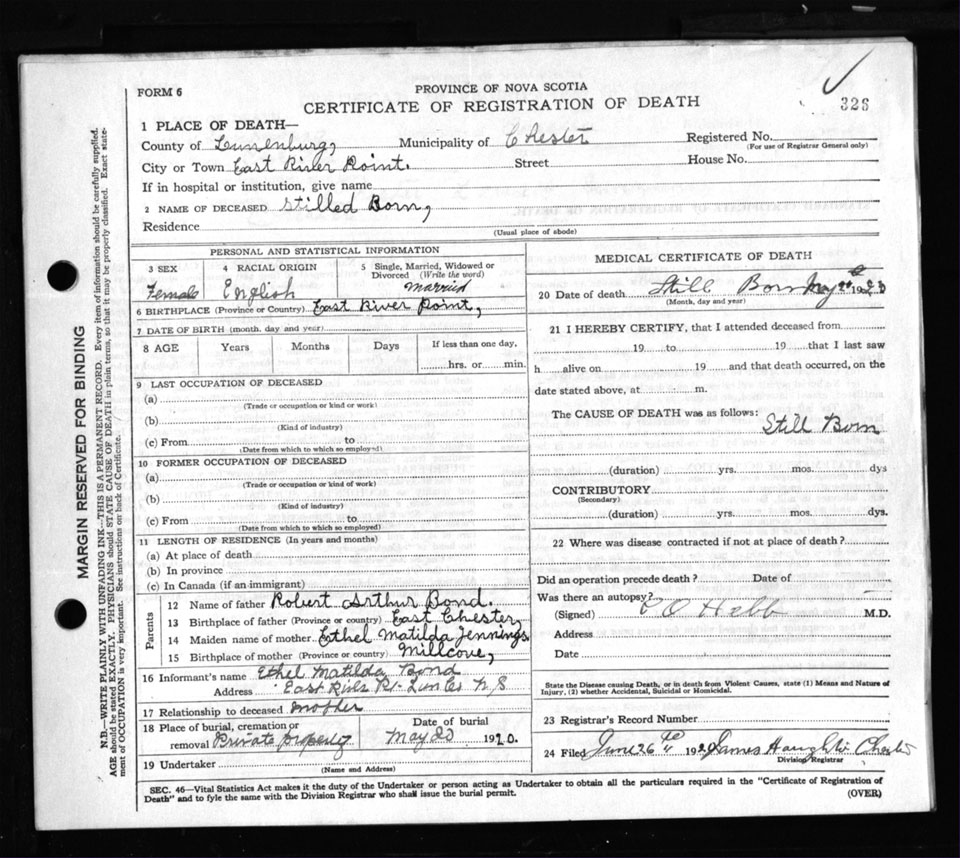 FORM 6
PROVINCE OF NOVA SCOTIA
CERTIFICATE OF REGISTRATION OF DEATH
326
1 PLACE OF DEATH—
County of Lunenburg, Municipality of Chester Registered No.
(For use of Registrar General only)
City or Town East River Point. Street House No.
If in hospital or institution, give name
2 NAME OF DECEASED Stilled Born,
Residence
(Usual place of abode)
PERSONAL AND STATISTICAL INFORMATION
3 SEX 4 RACIAL ORIGIN 5 Single, Married, Widowed or Divorced (Write the word)
Female English Married
6 BIRTHPLACE (Province or Country) East River Point,
7 DATE OF BIRTH (month, day and year)
8 AGE Years Months Days If less than one day,
hrs. or min.
9 LAST OCCUPATION OF DECEASED
(a)
(Trade or occupation or kind or work)
(b)
(Kind of industry)
(c) From to
(Date from which to which so employed)
10 FORMER OCCUPATION OF DECEASED
(a)
(Trade or occupation or kind of work)
(b)
(Kind of industry)
(c) From to
(Date from which to which so employed)
11 LENGTH OF RESIDENCE (In years and months)
(a) At place of death
(b) In province
(c) In Canada (if an immigrant)
Parents
12 Name of father Robert Arthur Bond.
13 Birthplace of father (Province or country) East Chester,
14 Maiden name of mother Ethel Matilda Jennings
15 Birthplace of mother (Province or country) Millcove,
16 Informant's name Ethel Matilda Bond
Address East River Pt. Lun Co N.S
17 Relationship to deceased mother
18 Place of burial, cremation or Date of burial
removal Private property May 20 1920.
19 Undertaker
(Name and Address)
MEDICAL CERTIFICATE OF DEATH
20 Date of death Still Born May 19
(Month, day and year)
21 I HEREBY CERTIFY, that I attended deceased from
19 to 19 that I last saw
h alive on 19 and that death occurred, on the
date stated above, at m.
The CAUSE OF DEATH was as follows:
Still Born
(duration) yrs. mos. dys
CONTRIBUTORY
(Secondary)
(duration) yrs. mos. dys.
22 Where was disease contracted if not at place of death?
Did an operation precede death? Date of
Was there an autopsy?
(Signed) C O Hebb M.D.
Address
Date
State the Disease causing Death, or in death from Violent Causes, state (1) Means and Nature of
Injury, (2) whether Accidental, Suicidal or Homicidal.
23 Registrar's Record Number
24 Filed June 26 19 James Chester
Division Registrar
SEC. 46—Vital Statistics Act makes it the duty of the Undertaker or person acting as Undertaker to obtain all the particulars required in the "Certificate of Registration of
Death" and to fyle the same with the Division Registrar who shall issue the burial permit. (OVER)
MARGIN RESERVED FOR BINDING
N.B.—WRITE PLAINLY WITH UNFADING INK—THIS IS A PERMANENT RECORD. Every item of information should be carefully supplied.
AGE should be stated EXACTLY. PHYSICIANS should STATE CAUSE OF DEATH in plain terms, so that it may be properly classified. Exact statement of OCCUPATION is very important. See instructions on back of Certificate.